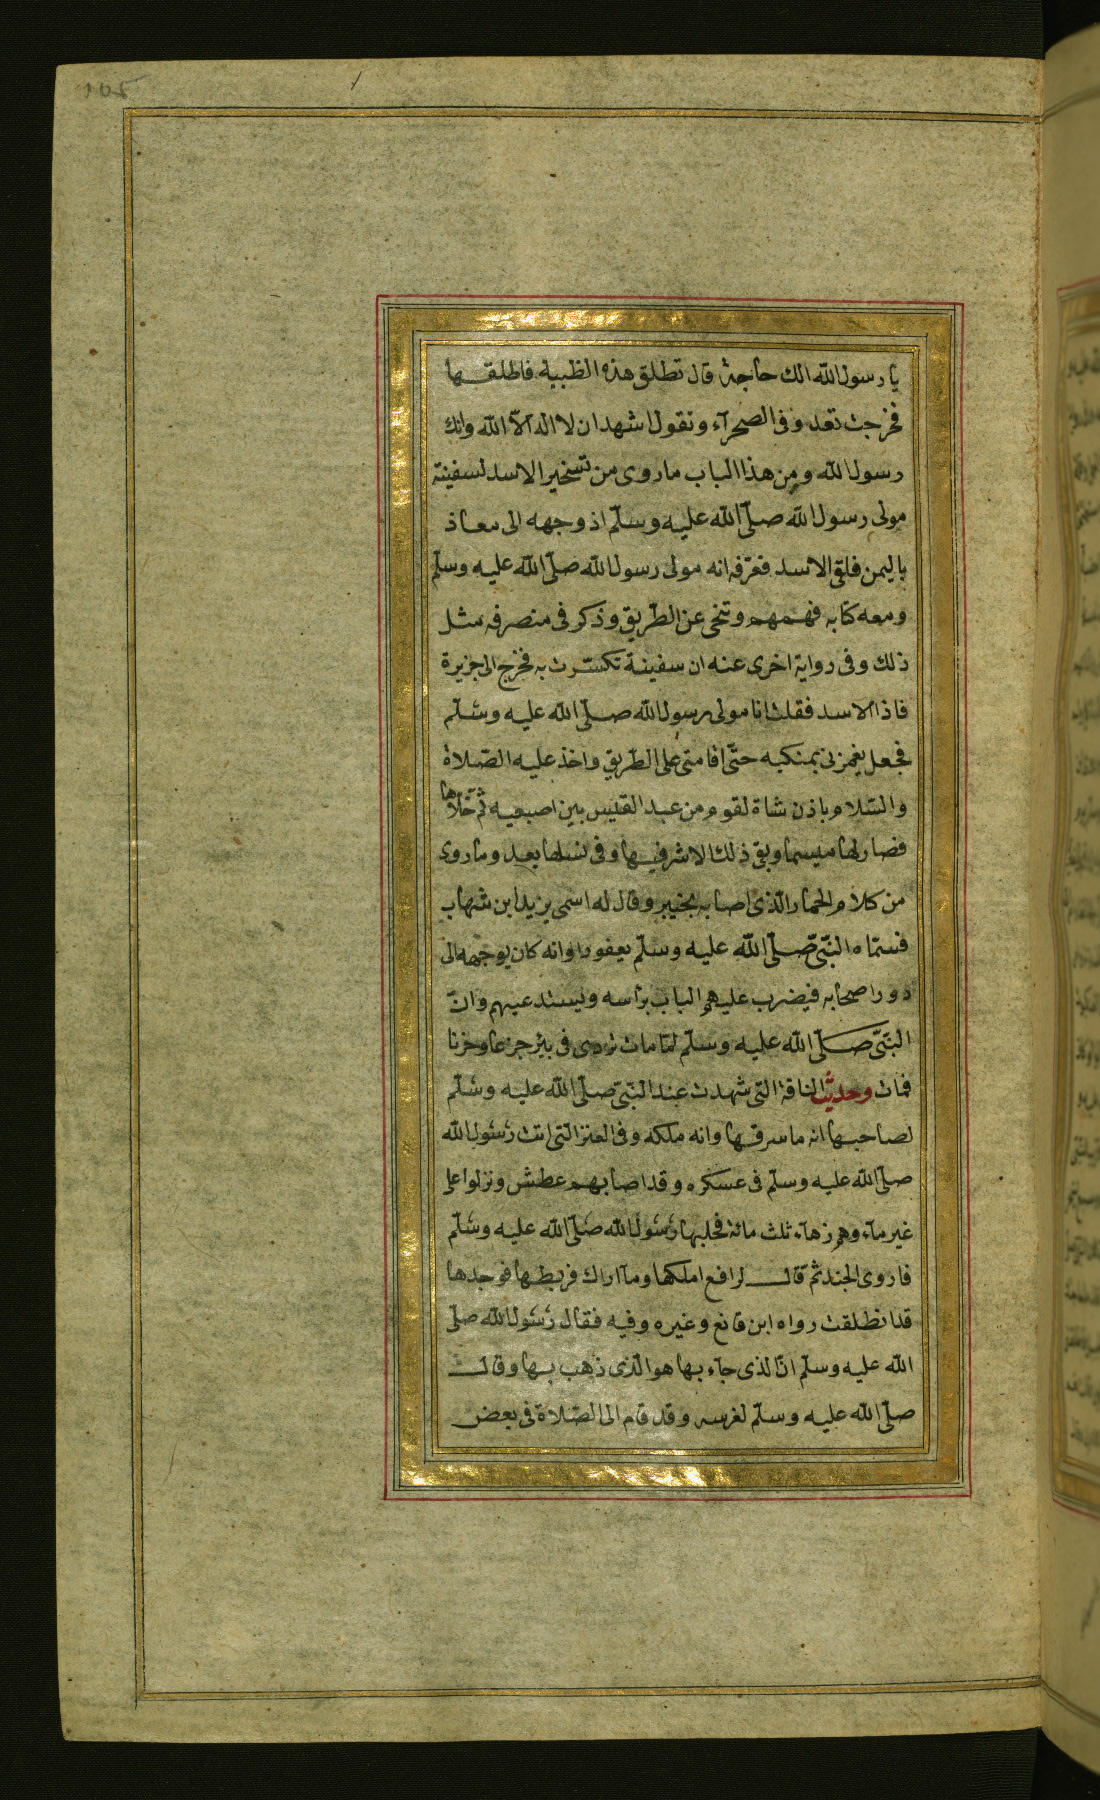 يا رسول الله الك حاجة قال تطلق هذه الظبية فاطلقها
فخرجت تعدو فى الصحرآء وتقول اشهد ان لا اله الّا الله وانك
رسول الله ومن هذا الباب ما روى من تسخير الاسد لسفينة
مولى رسول الله صلّى الله عليه وسلّم اذ وجهه الى معاذ
باليمن فلقى الاسد فعرّفه انه مولى رسول الله صلّى الله عليه وسلّم
ومعه كتابه فهمهم وتنحى عن الطّريق وذكر فى منصرفه مثل
ذلك وفى رواية اخرى عنه ان سفينة تكسّرت به فخرج الى جزيرة
فاذا الاسد فقلت انا مولى رسول الله صلّى الله عليه وسلّم
فجعل يغمزنى بمنكبه حتّى اقامنى على الطّريق واخذ عليه الصّلاة
والسّلام باذن شاة لقوم من عبد القيس بين اصبعيه ثمّ خلّاها
فصار لها ميسما وبقى ذلك الاثر فيها وفى نسلها بعد وما روى
من كلام الحمار الّذى اصابه بخيبر وقال له اسمى يزيد ابن شهاب
فسمّاه النبّى صلّى الله عليه وسلّم يعفورا وانه كان يوجهه الى
دور اصحابه فيضرب عليهم الباب برأسه ويستدعيهم وانّ
النبّى صلّى الله عليه وسلّم لمّا مات تردى فى بئر جزعا وحزنا
فمات وحديث الناقة التى شهدت عند النبّى صلّى الله عليه وسلّم
لصاحبها انه ما سرقها وانه ملكه وفى العنز التى اتت رسول الله
صلّى الله عليه وسلّم فى عسكره وقد اصابهم عطش ونزلوا على
غير مآء وهم زهآء ثلث مائة فحلبها رسول الله صلّى الله عليه وسلّم
فاروى الجند ثم قال لرافع املكها وما اراك فربطها فوجدها
قد انطلقت رواه ابن قانع وغيره وفيه فقال رسول الله صلّى
الله عليه وسلّم انّ الذى جآء بها هو الّذى ذهب بها وقال
صلّى الله عليه وسلّم لفرسه وقد قام الى الصّلاة فى بعض